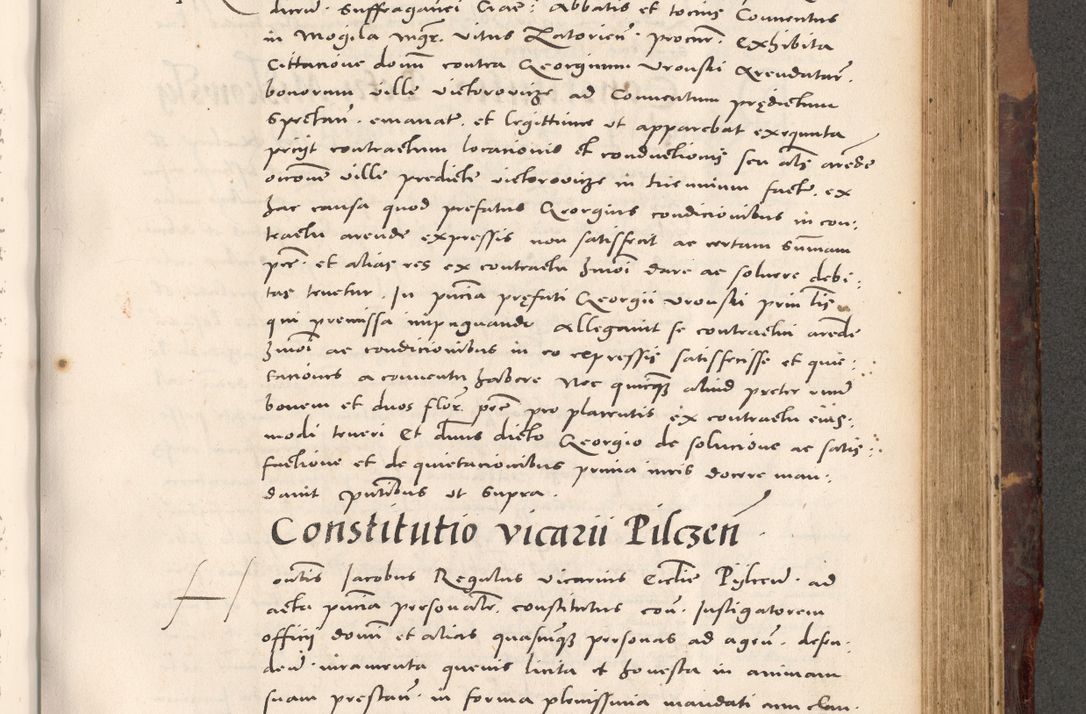 dicem̄. Suffraganei Crac̄: Abbatis et tocius Conuentus
in Mogila mgr̄. vitus Latorien̄. procur̄. Exhibita
Cittacione domī contra Georgium Vronski Arendatar̄.
bonorum ville victorovicze ad Conuentum prędictum
Spectan̄. emanat̄. et legittime ut apparebat exequuta
pecijt contractum locacionis et conductionis seu al̄s arēde
ville predicte victorovicze in triennium facte. ex
hac causa quod prefatus Georgius condicionibus in con:
tractu arende expressis non satisfecit ac certam sum̄am
pec̄. et alias res ex contractu hmōi dare ac soluere debi:
tas tenetur. In pn̄cia pręfati Georgii Vronski prin̄l̄is
qui premissa impugnando Allegauit se contractui arēde
hmōi ac condicionibus in eo expressis satisfecisse et quie:
tacionis a conuentu habere Nec quicq̄ aliud preter vnū
bouem et duos flor̄. pec̄ pro placentis ex contractu eius:
modi teneri Et dn̄us dicto Georgio de solucione ac satis:
factione et de quietacionibus prima iuris docere man:
dauit pn̄tibus ut supra.
Constitutio vicarii Pilczen̄.
Honl̄is Jacobus Regulus vicarius Ecclie Pilcen̄. ad
acta pn̄cia personalr̄. constitutus con̄. Instigatorem
officij domī et alias quascūq̄ personas ad agen̄. defen:
den̄. iuramenta queuis licita et honesta in animam
suam prestan̄. in forma plenissima mandati cum clau: